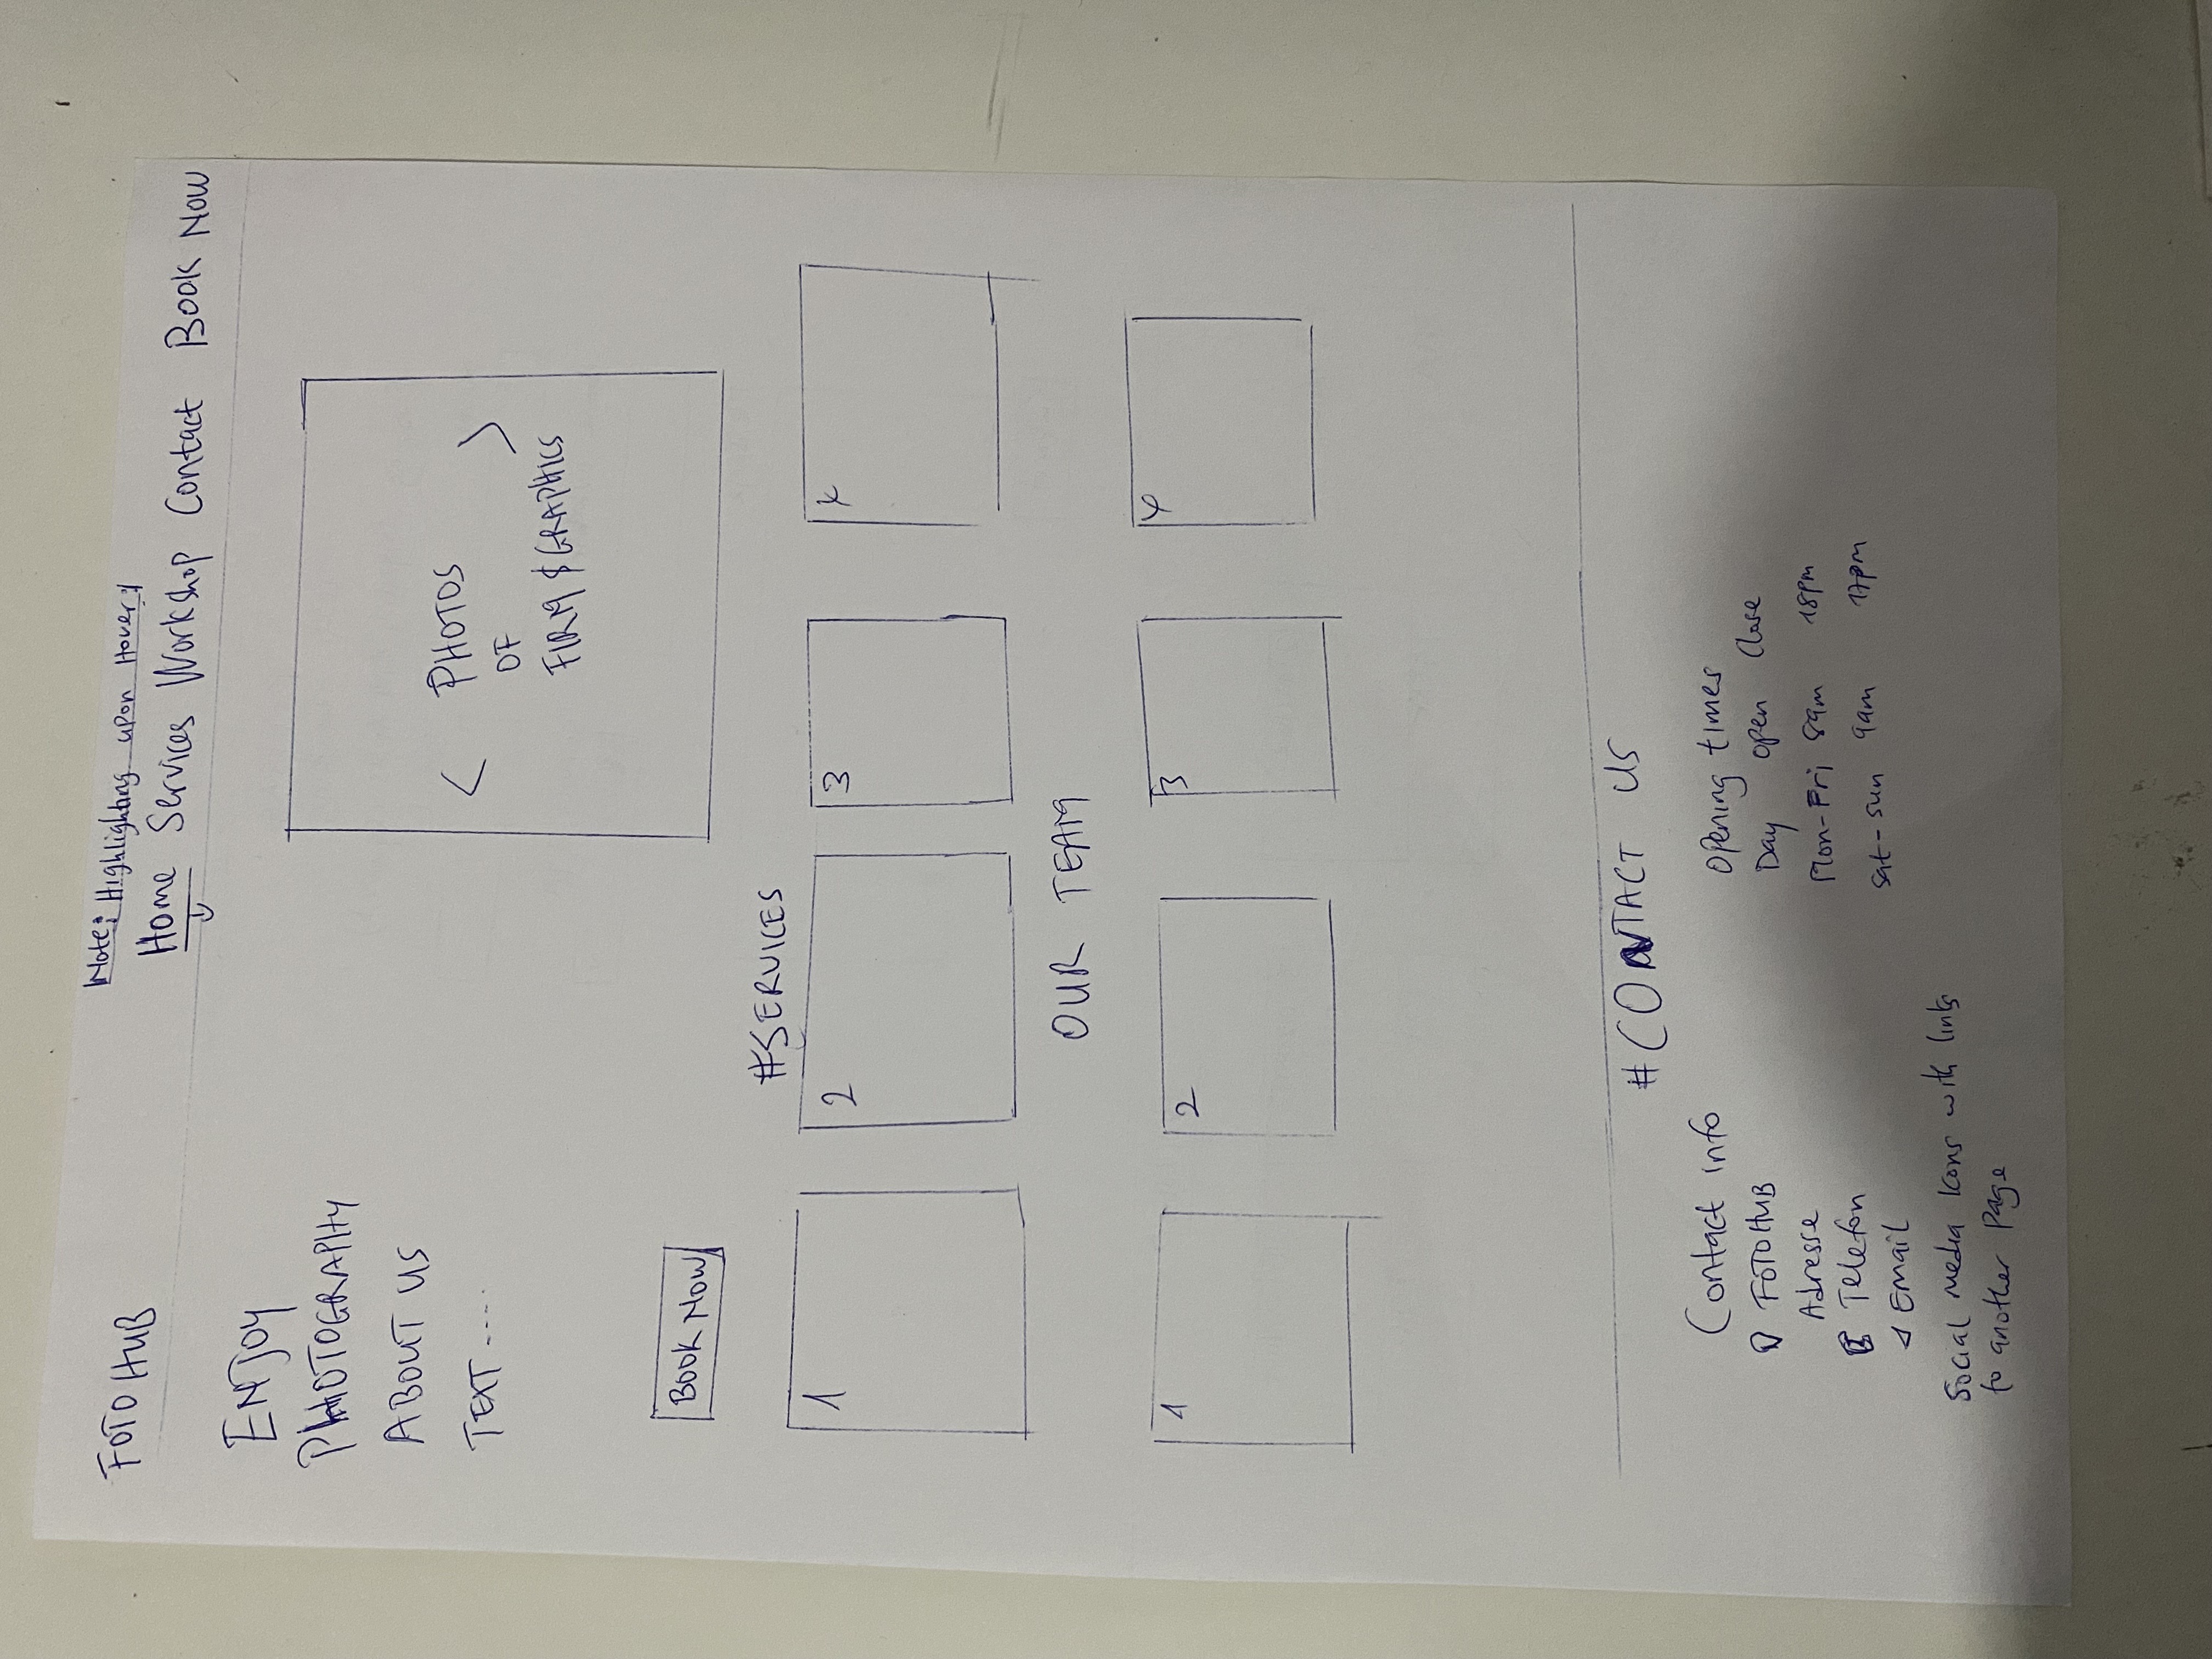 FOTO HUB
Note: Highlighting upon Hover!
Home Services Workshop Contact Book Now
ENJOY
PHOTOGRAPHY
ABOUT US
TEXT ----
< PHOTOS >
OF
FIRM & GRAPHICS
BOOK NOW
#SERVICES
1 2 3 4
OUR TEAM
1 2 3 4
#CONTACT US
Contact info
FOTOHUB
Adresse
Telefon
Email
Social media Icons with links
to another page
Opening times
Day open Close
Mon-Fri 8am 18pm
Sat-sun 9am 17pm